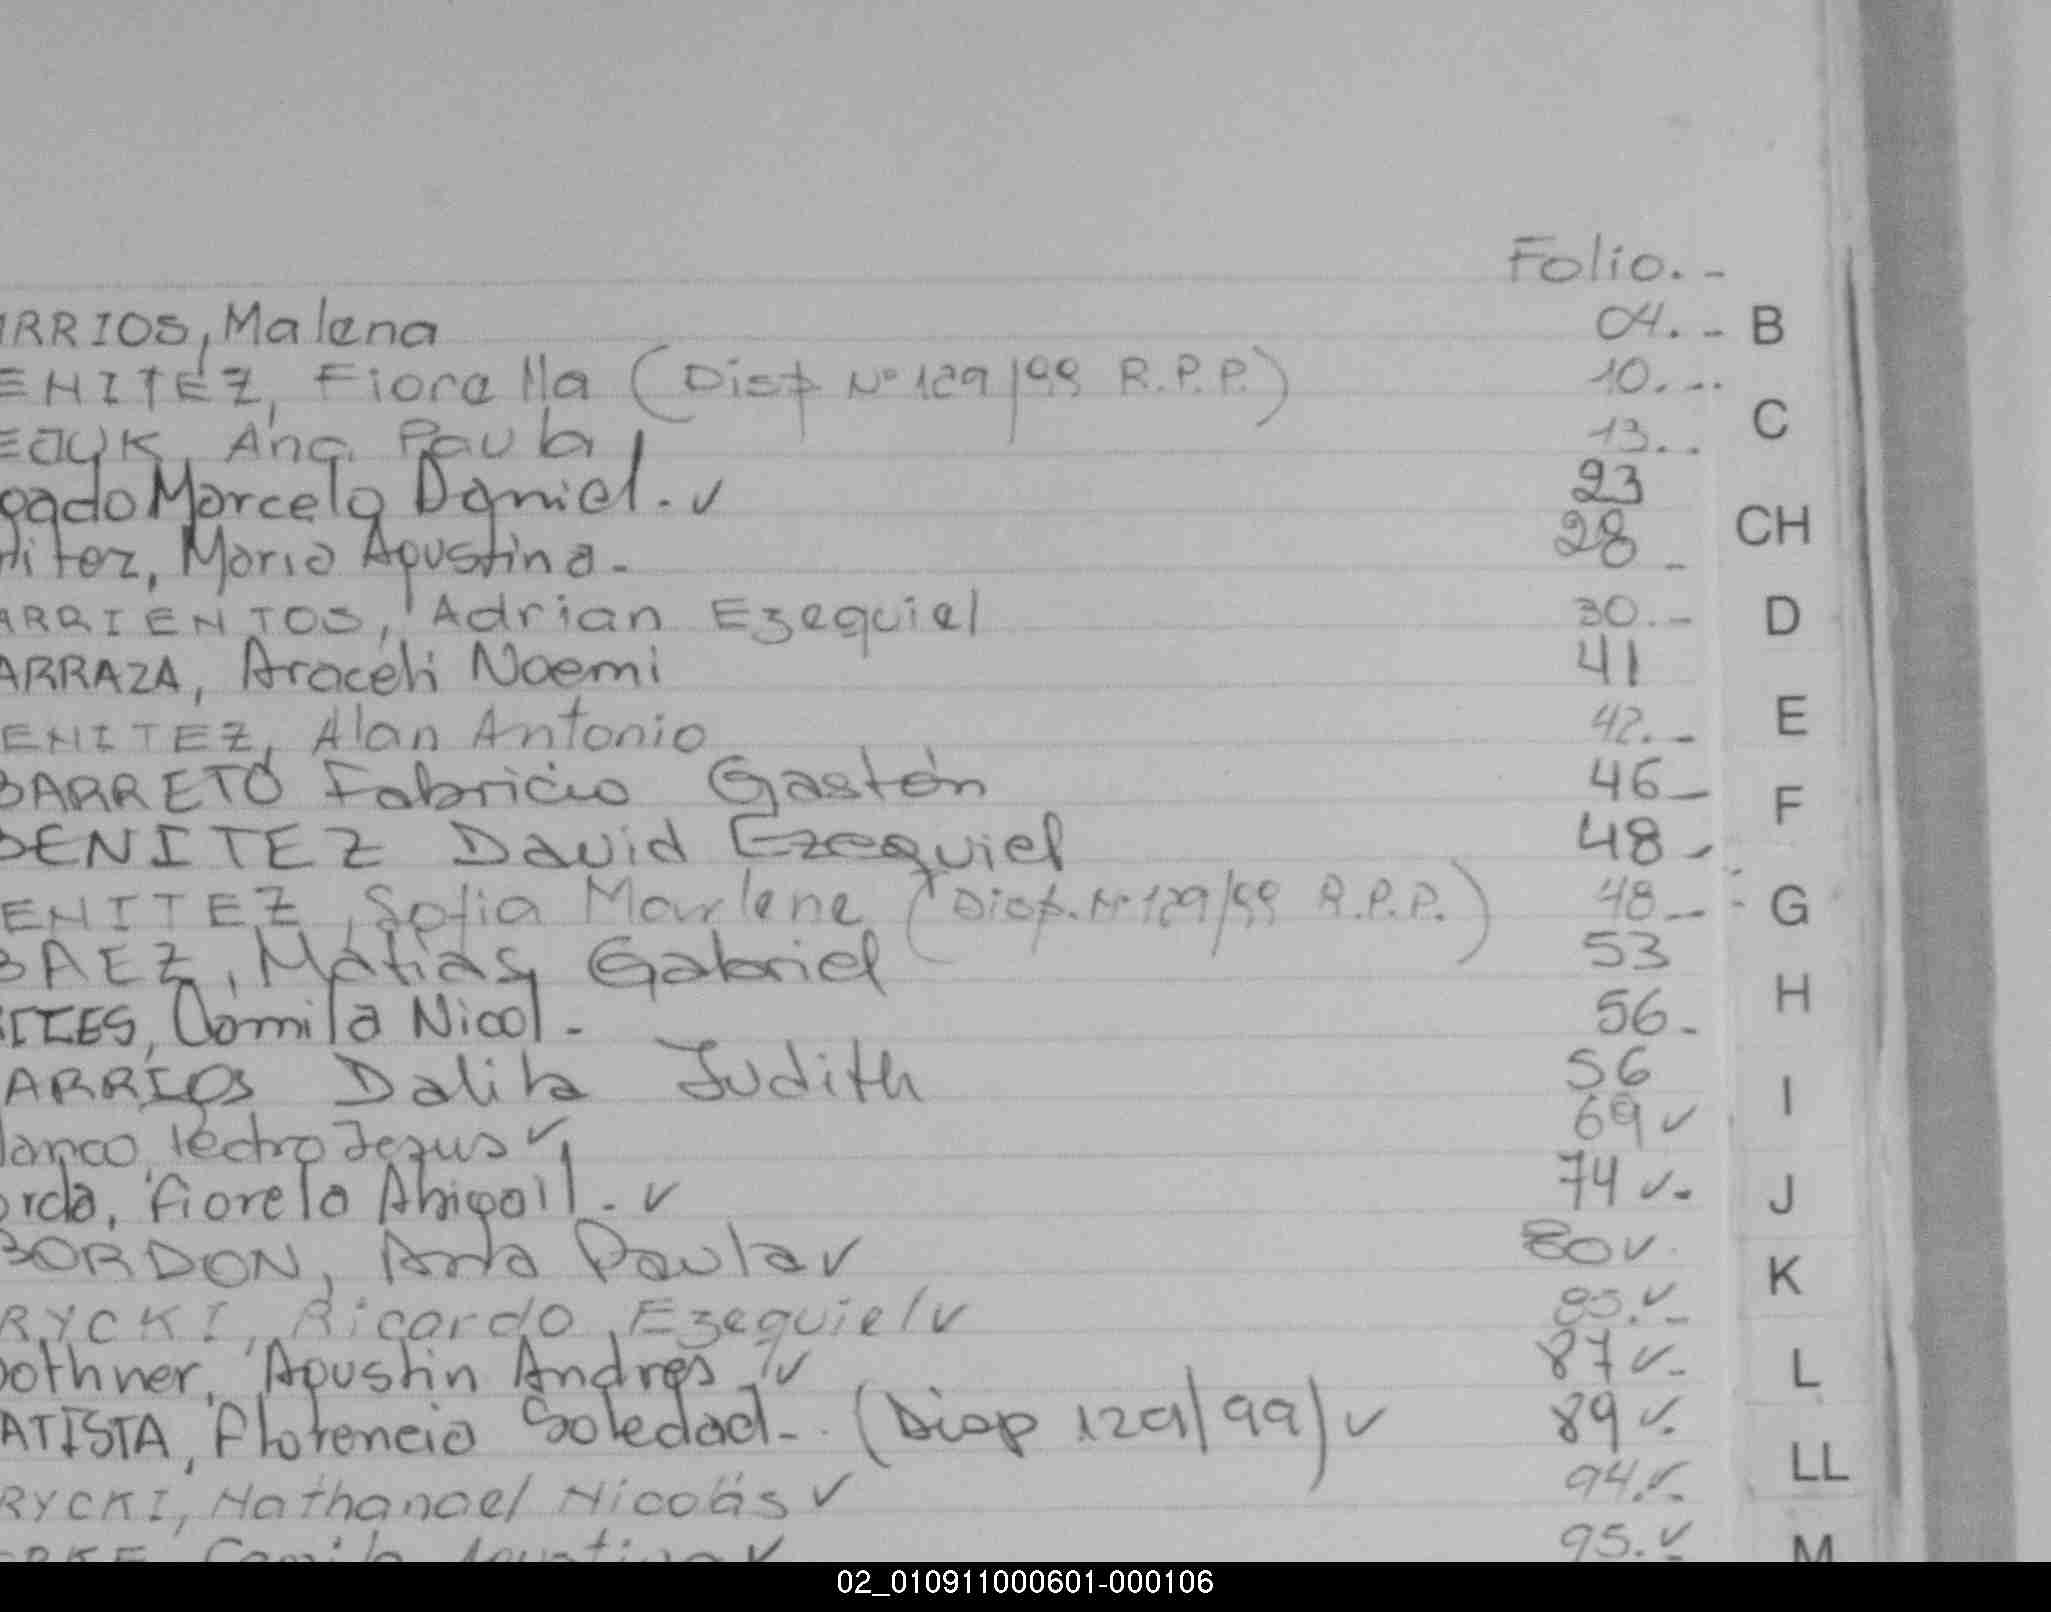 Folio.-
ARRIOS, Malena 04.-
ENITEZ, Fiorella (Disp Nº 129/99 R.P.P.) 10.-
EJUK, Ana Paula 13.-
Marcelo Daniel.- ✓ 23
nitez, Maria Agustina.- 28-
ARRIENTOS, Adrian Ezequiel 30.-
ARRAZA, Araceli Noemi 41
ENITEZ, Alan Antonio 42.-
BARRETO Fabricio Gastón 46-
BENITEZ David Ezequiel 48-
ENITEZ, Sofia Marlene (Disp. Nº 129/99 R.P.P.) 48-
BAEZ, Matias Gabriel 53
ITES, Camila Nicol- 56-
ARRIOS Dalila Judith 56
lanco, Pedro Jesus ✓ 69 ✓
orda, Fiorela Abigail.- ✓ 74 ✓-
BORDON, Ana Paula ✓ 80 ✓
RYCKI, Ricardo Ezequiel ✓ 85.✓-
othner, Agustin Andres ✓ 87 ✓-
ATISTA, Florencia Soledad-. (Disp 129/99) ✓ 89 ✓-
RYCKI, Nathanael Nicolás ✓ 94.✓-
Camila Agustina ✓ 95.✓
B
C
CH
D
E
F
G
H
I
J
K
L
LL
M
02_010911000601-000106